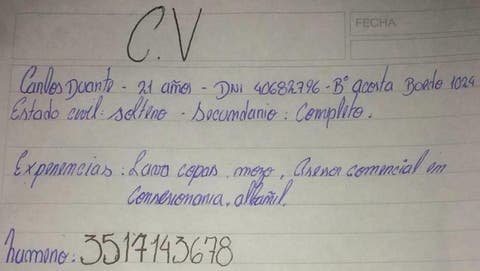 FECHA
C.V
Carlos Duarte - 21 años - DNI 40682796 - Bº acosta Boedo 1024
Estado civil: soltero - Secundario: Completo.
Experiencias: Lava copas, mozo, Asesor comercial en
Consesionaria, albañil.
humero: 3517143678